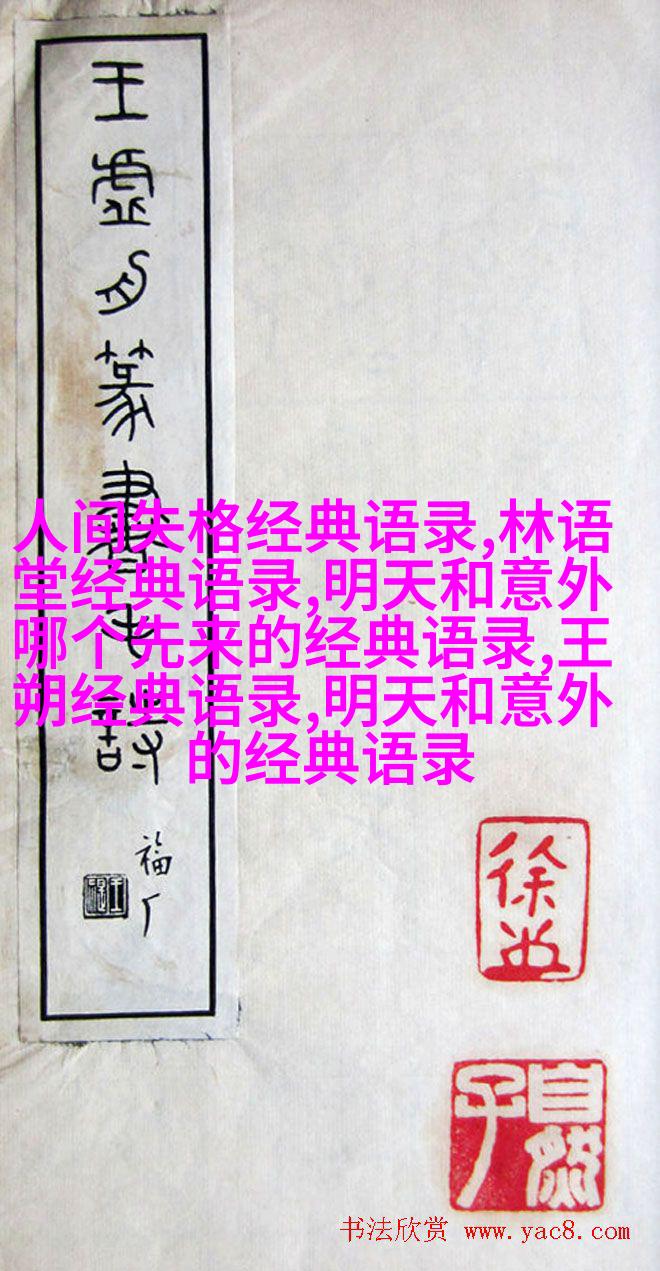 王虛舟篆書
詩
福厂
人间失格经典语录,林语
堂经典语录,明天和意外
哪个先来的经典语录,王
朔经典语录,明天和意外
的经典语录
自然子
书法欣赏 www.yac8.com